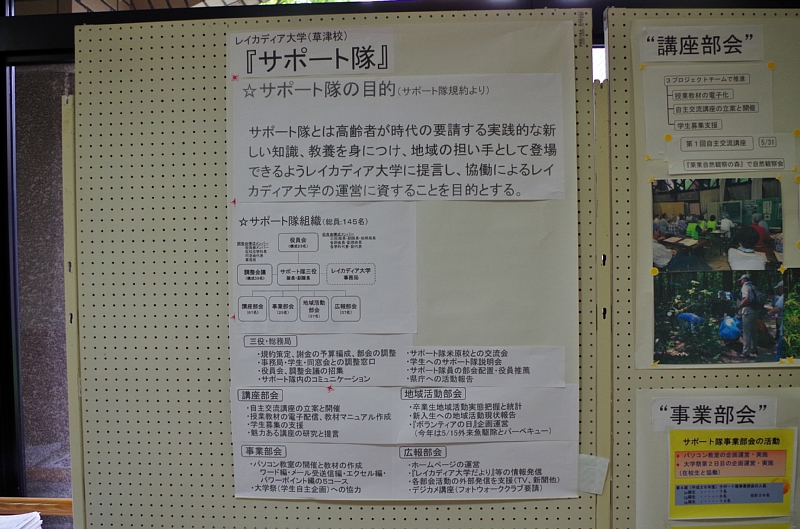 レイカディア大学(草津校)
『サポート隊』
☆サポート隊の目的(サポート隊規約より)
サポート隊とは高齢者が時代の要請する実践的な新
しい知識、教養を身につけ、地域の担い手として登場
できるようレイカディア大学に提言し、協働によるレイ
カディア大学の運営に資することを目的とする。
☆サポート隊組織(総員:145名)
役員会
調整会議
サポート隊三役
隊長・副隊長
レイカディア大学
事務局
講座部会
事業部会
地域活動
部会
広報部会
三役・総務局
・規約策定、謝金の予算編成、部会の調整
・事務局・学生・同窓会との調整窓口
・役員会、調整会議の招集
・サポート隊内のコミュニケーション
・サポート隊米原校との交流会
・学生へのサポート隊説明会
・サポート隊員の部会配置・役員推薦
・県庁への活動報告
講座部会
・自主交流講座の立案と開催
・授業教材の電子配信、教材マニュアル作成
・学生募集の支援
・魅力ある講座の研究と提言
地域活動部会
・卒業生地域活動実態把握と統計
・新入生への地域活動現状報告
・『ボランティアの日』企画運営
(今年は5/15外来魚駆除とバーベキュー)
事業部会
・パソコン教室の開催と教材の作成
ワード編・メール受送信編・エクセル編・
パワーポイント編の5コース
・大学祭(学生自主企画)への協力
広報部会
・ホームページの運営
・『レイカディア大学だより』等の情報発信
・各部会活動の外部発信を支援(TV、新聞他)
・デジカメ講座(フォトウォーククラブ要請)
“講座部会”
3プロジェクトチームで推進
授業教材の電子化
自主交流講座の立案と開催
学生募集支援
第1回自主交流講座 5/31
『栗東自然観察の森』で自然観察会
“事業部会”
サポート隊事業部会の活動
・パソコン教室の企画運営・実施
・大学祭第2日目の企画運営・実施
(在校生と協働)